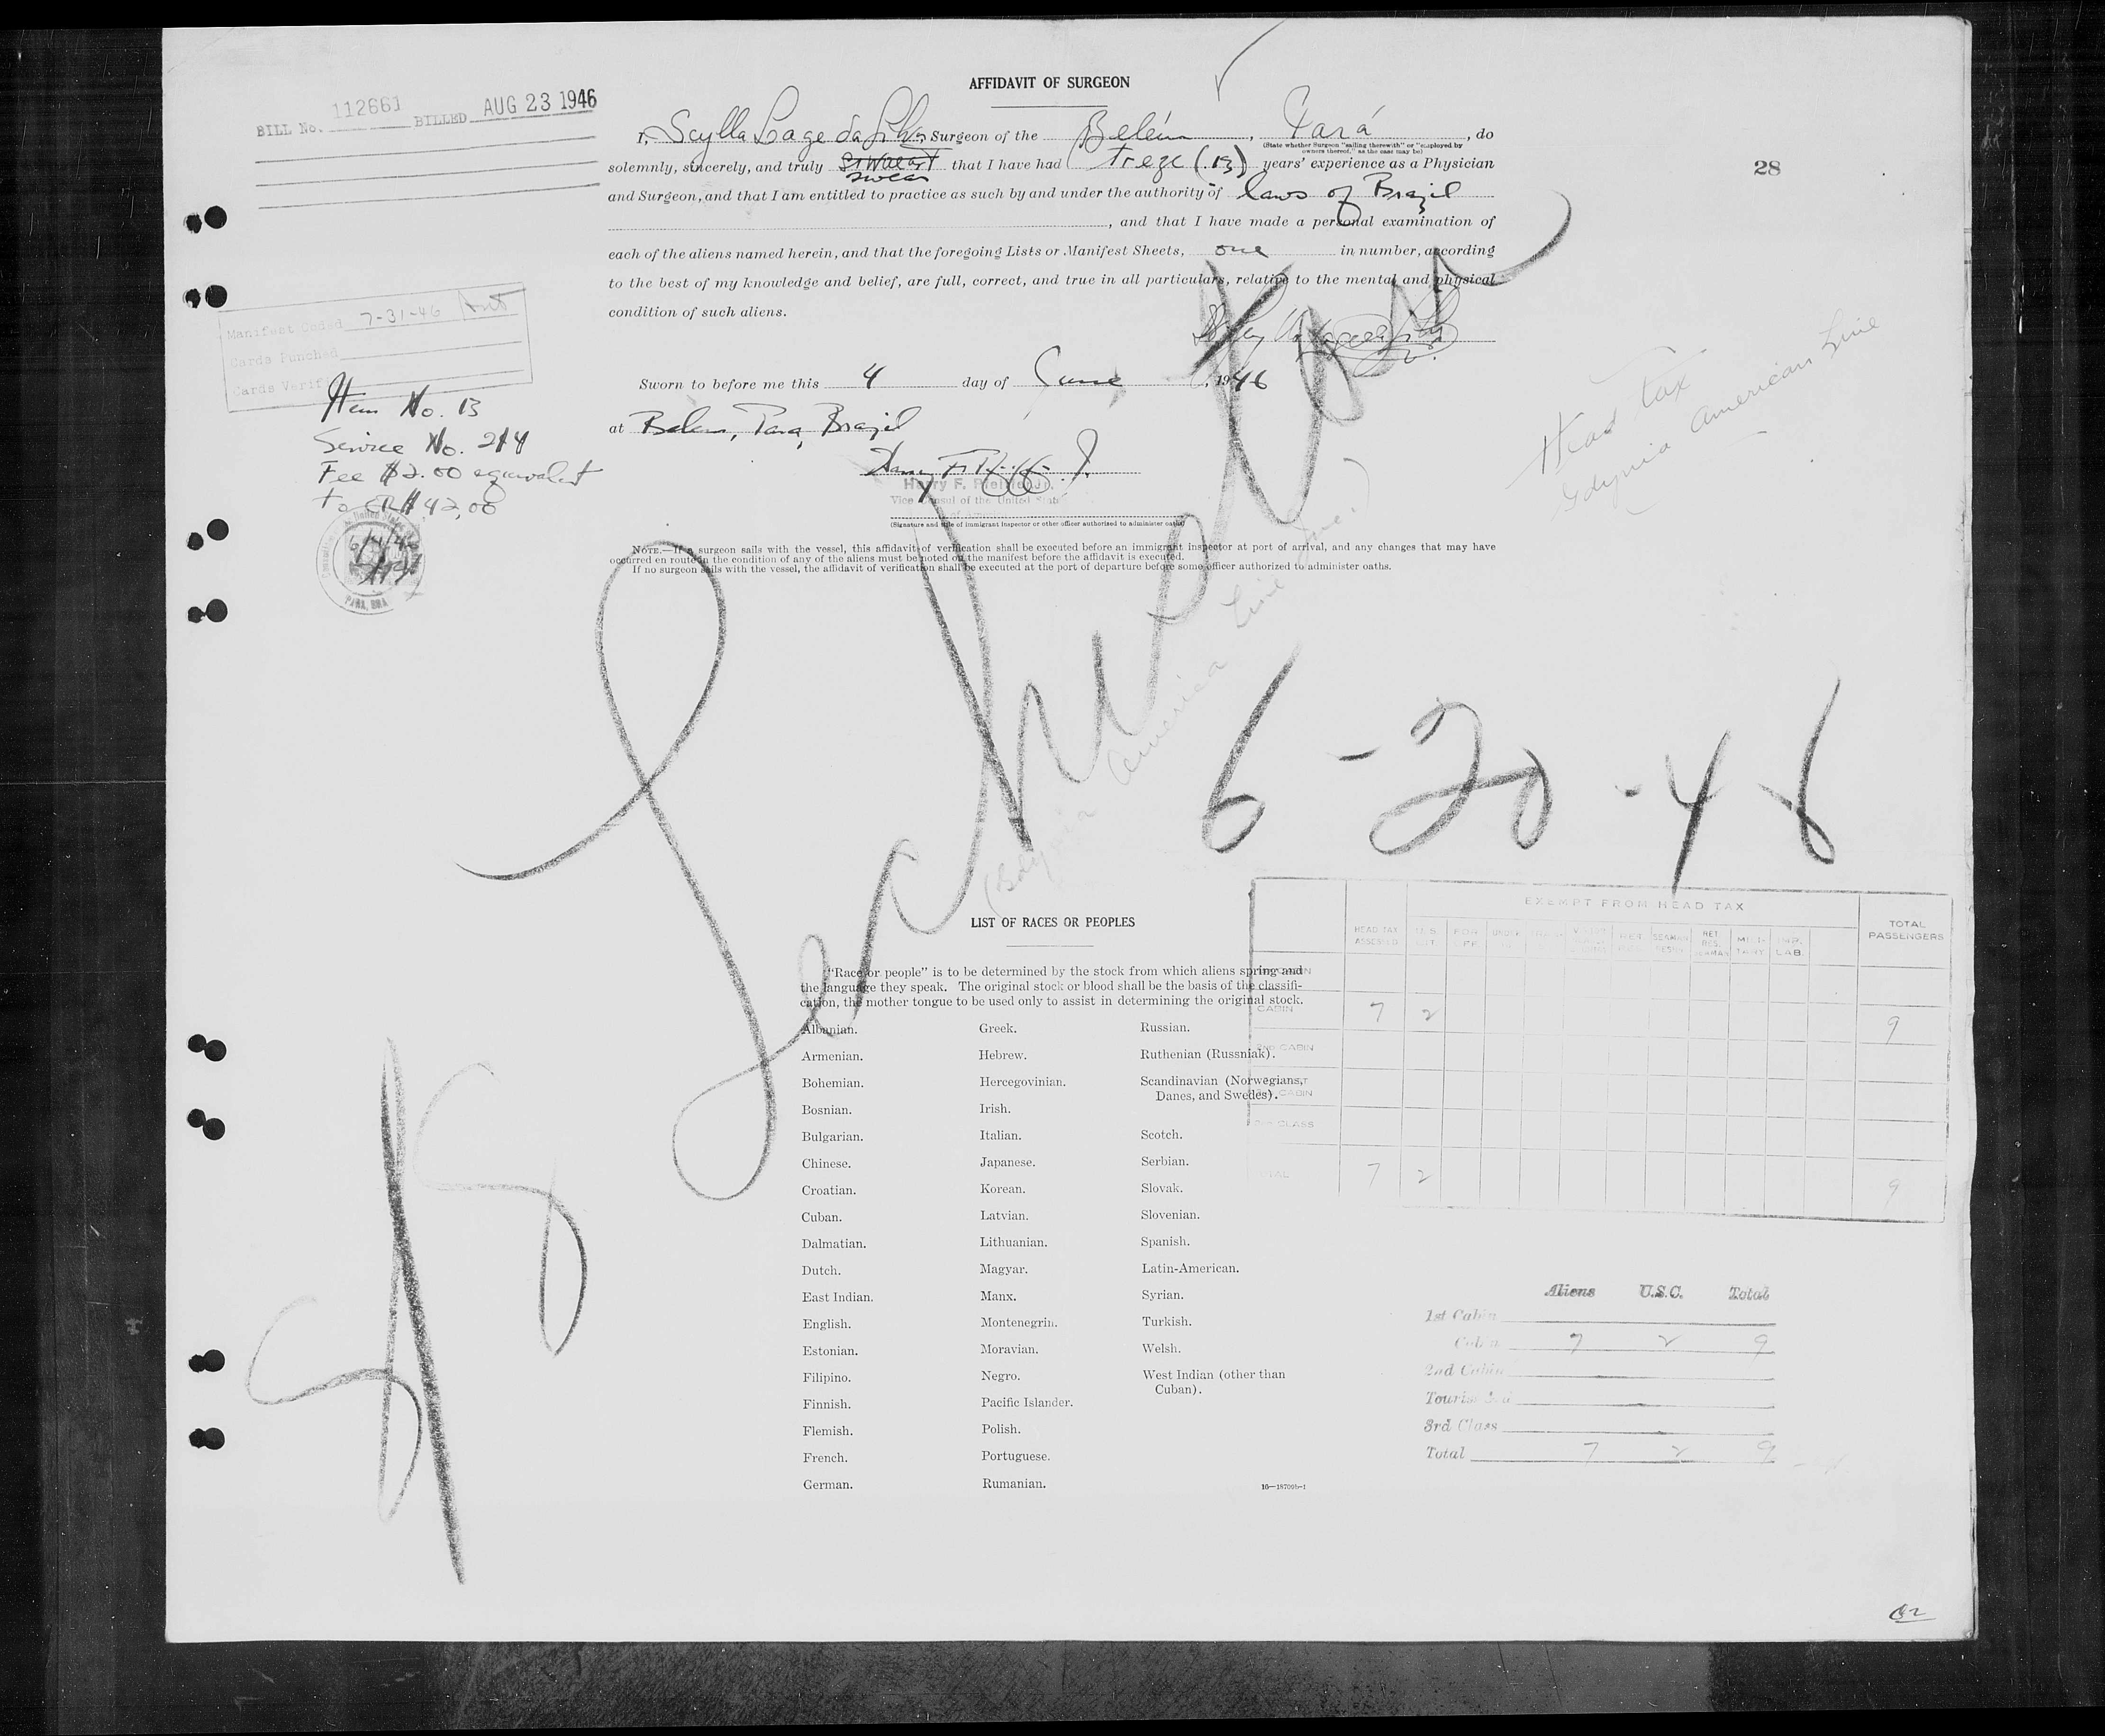 AFFIDAVIT OF SURGEON
BILL No. 112661 BILLED AUG 23 1946
28
I, Scylla Lage da Silva, Surgeon of the Belém, Pará, do
(State whether Surgeon "sailing therewith" or "employed by
owners thereof," as the case may be)
solemnly, sincerely, and truly swear that I have had treze (13) years' experience as a Physician
and Surgeon, and that I am entitled to practice as such by and under the authority of laws of Brazil
, and that I have made a personal examination of
each of the aliens named herein, and that the foregoing Lists or Manifest Sheets, one in number, according
to the best of my knowledge and belief, are full, correct, and true in all particulars, relative to the mental and physical
condition of such aliens.
Manifest Coded 7-31-46
Cards Punched
Cards Verif
Sworn to before me this 4 day of June, 1946
at Belem, Para, Brazil
Harry F. Pfeiffer Jr.
Vice Consul of the United States
of America
(Signature and title of immigrant inspector or other officer authorized to administer oaths)
Item No. 13
Service No. 214
Fee $2.00 equivalent
to CR$42,00
PARA, BRA
Head Tax
Gdynia American Line
NOTE.—If a surgeon sails with the vessel, this affidavit of verification shall be executed before an immigrant inspector at port of arrival, and any changes that may have
occurred en route in the condition of any of the aliens must be noted on the manifest before the affidavit is executed.
If no surgeon sails with the vessel, the affidavit of verification shall be executed at the port of departure before some officer authorized to administer oaths.
(Gdynia America Line Inc.)
6-20-46
S/S
LIST OF RACES OR PEOPLES
"Race or people" is to be determined by the stock from which aliens spring and
the language they speak. The original stock or blood shall be the basis of the classifi-
cation, the mother tongue to be used only to assist in determining the original stock.
Albanian.
Armenian.
Bohemian.
Bosnian.
Bulgarian.
Chinese.
Croatian.
Cuban.
Dalmatian.
Dutch.
East Indian.
English.
Estonian.
Filipino.
Finnish.
Flemish.
French.
German.
Greek.
Hebrew.
Hercegovinian.
Irish.
Italian.
Japanese.
Korean.
Latvian.
Lithuanian.
Magyar.
Manx.
Montenegrin.
Moravian.
Negro.
Pacific Islander.
Polish.
Portuguese.
Rumanian.
Russian.
Ruthenian (Russniak).
Scandinavian (Norwegians,
Danes, and Swedes).
Scotch.
Serbian.
Slovak.
Slovenian.
Spanish.
Latin-American.
Syrian.
Turkish.
Welsh.
West Indian (other than
Cuban).
16—18706b-1
EXEMPT FROM HEAD TAX
HEAD TAX ASSESSED
U.S. CIT.
TOTAL PASSENGERS
CABIN 7 2 9
2ND CABIN
CABIN
3RD CLASS
TOTAL 7 2 9
Aliens U.S.C. Total
1st Cabin
Cabin 7 2 9
2nd Cabin
Tourist 3rd
3rd Class
Total 7 2 9